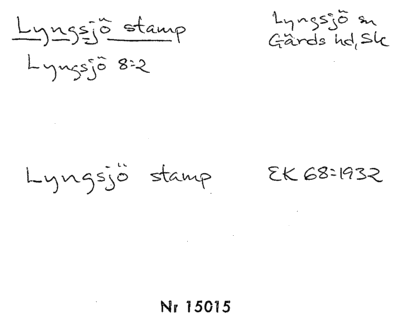 Lyngsjö stamp
Lyngsjö 8:2
Lyngsjö sn
Gärds hd, Sk
Lyngsjö stamp
EK 68:1932
Nr 15015